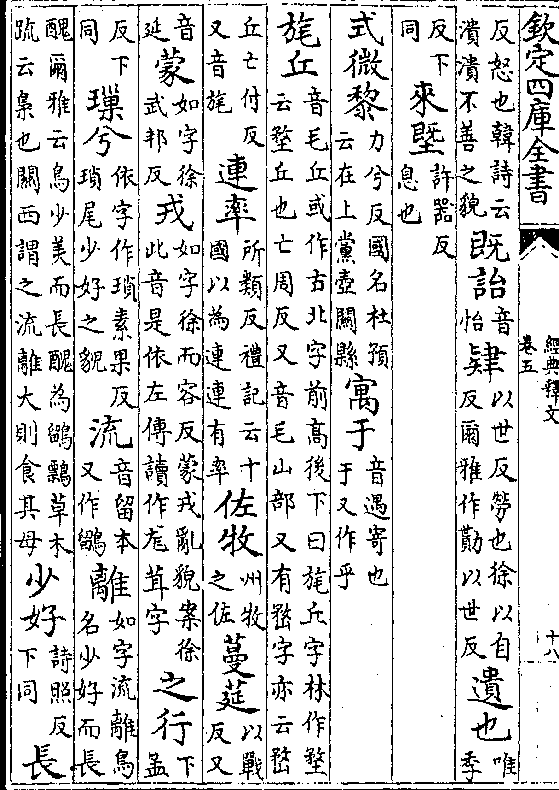 欽定四庫全書
經典釋文
卷五
十八
反怒也韓詩云潰潰不善之貌既詒音怡肄以世反勞也徐以自反爾雅作勩以世反遺也唯季
反下同來墍許器反息也
式微黎力兮反國名杜預云在上黨壺關縣寓于音遇寄也于又作乎
旄丘音毛丘或作古北字前高後下曰旄丘字林作堥云堥丘也亡周反又音毛山部又有嵍字亦云嵍
丘亡付反又音旄連率所類反禮記云十國以為連連有率佐牧州牧之佐蔓莚以戰反又
音延蒙如字徐武邦反戎如字徐而容反蒙戎亂貌案徐此音是依左傳讀作尨茸字之行下孟
反下同璅兮依字作瑣素果反瑣尾少好之貌流音留本又作鶹離如字流離鳥名少好而長
醜爾雅云鳥少美而長醜為鶹鷅草木疏云梟也關西謂之流離大則食其母少好詩照反下同長